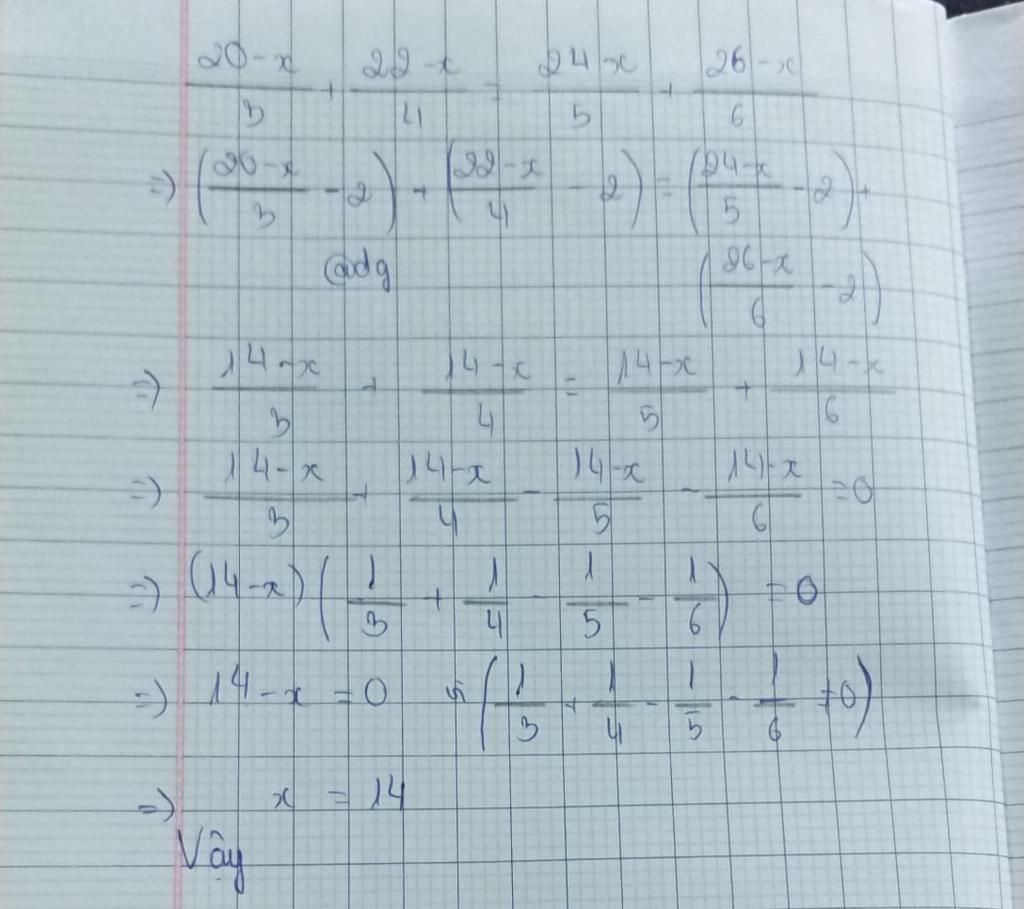 20-x/3 + 22-x/4 = 24-x/5 + 26-x/6
=> (20-x/3 - 2) + (22-x/4 - 2) = (24-x/5 - 2) +
(26-x/6 - 2)
=> 14-x/3 + 14-x/4 = 14-x/5 + 14-x/6
=> 14-x/3 + 14-x/4 - 14-x/5 - 14-x/6 = 0
=> (14-x) (1/3 + 1/4 - 1/5 - 1/6) = 0
=> 14-x = 0 (1/3 + 1/4 - 1/5 - 1/6 ≠ 0)
=> x = 14
Vậy